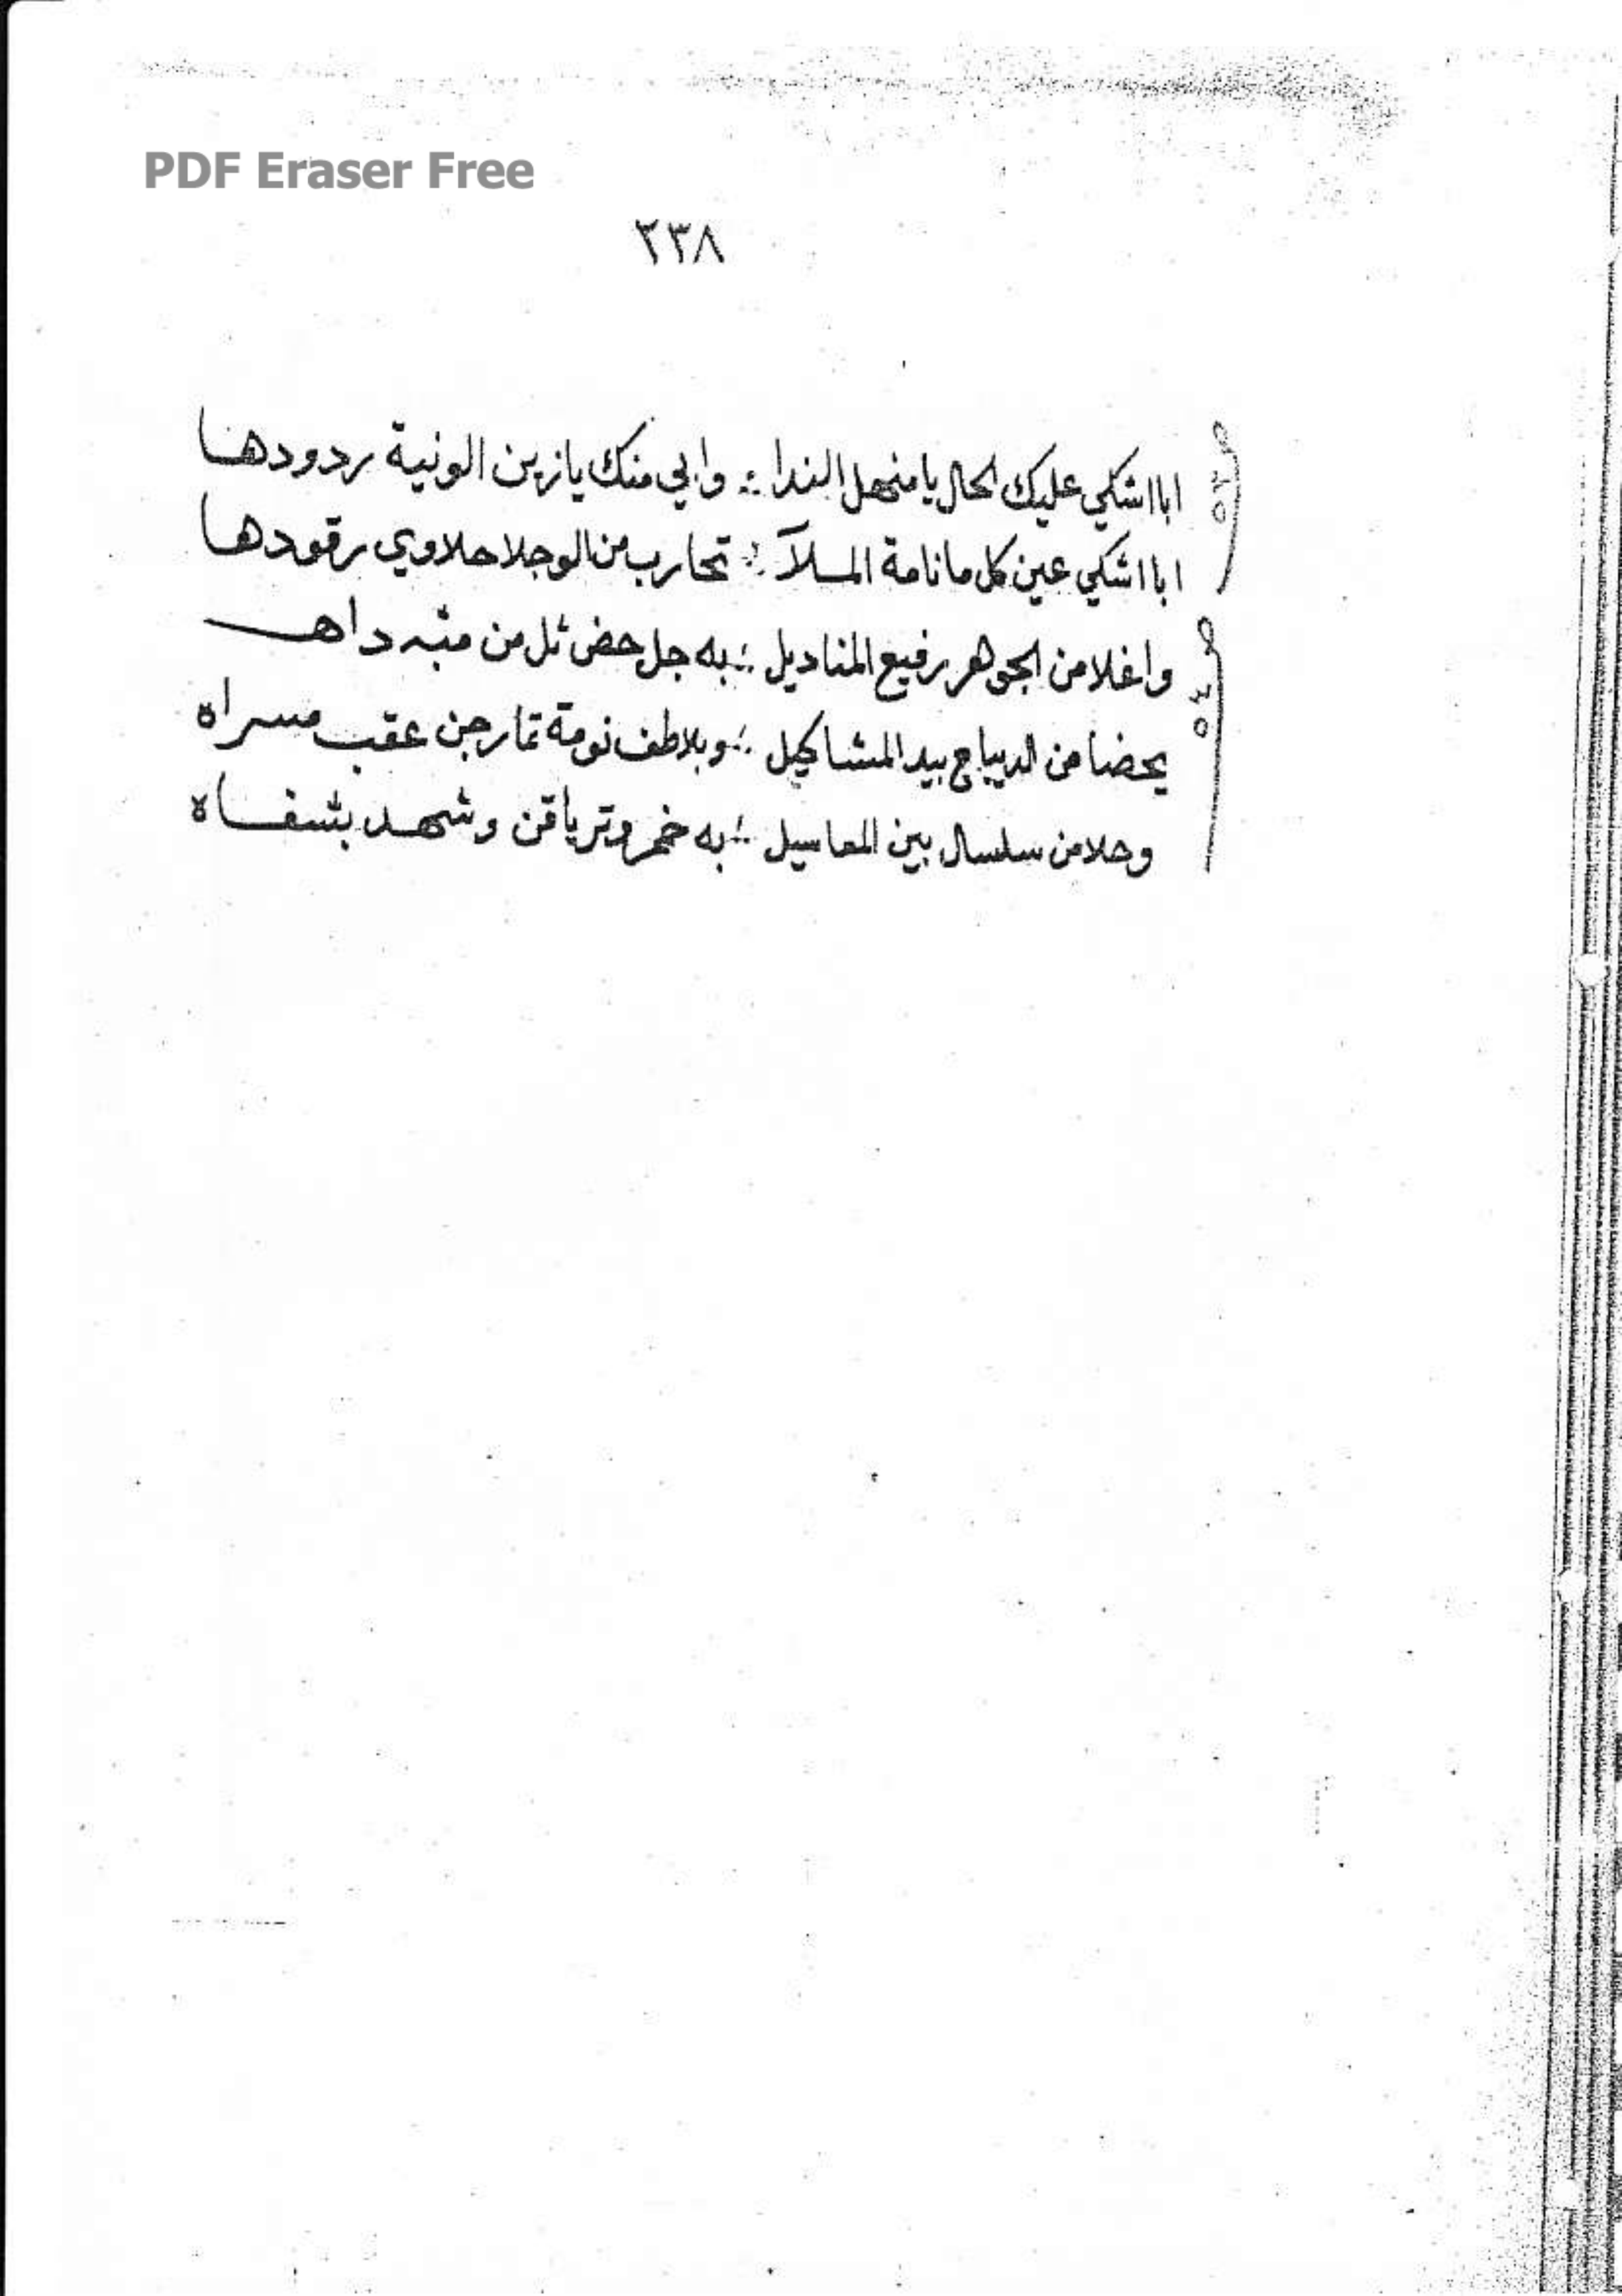 PDF Eraser Free
٢٣٨
ابا اشكي عليك الحال يا منهل الندا ∴ وابي منك يا زين الونية ردودها
ابا اشكي عين كل ما نامة الملآ ∴ تحارب من الوجلا حلاوي رقودها
واغلا من الجوهر رفيع المناديل ∴ به جل حض ثل من داهـ
يحضا من الديباج بيد المشاكيل ∴ وبلاطف نومة تمارجن عقب مسراه
وحلا من سلسال بين المعاسيل ∴ به خمر وترياقن وشهد بشفاه